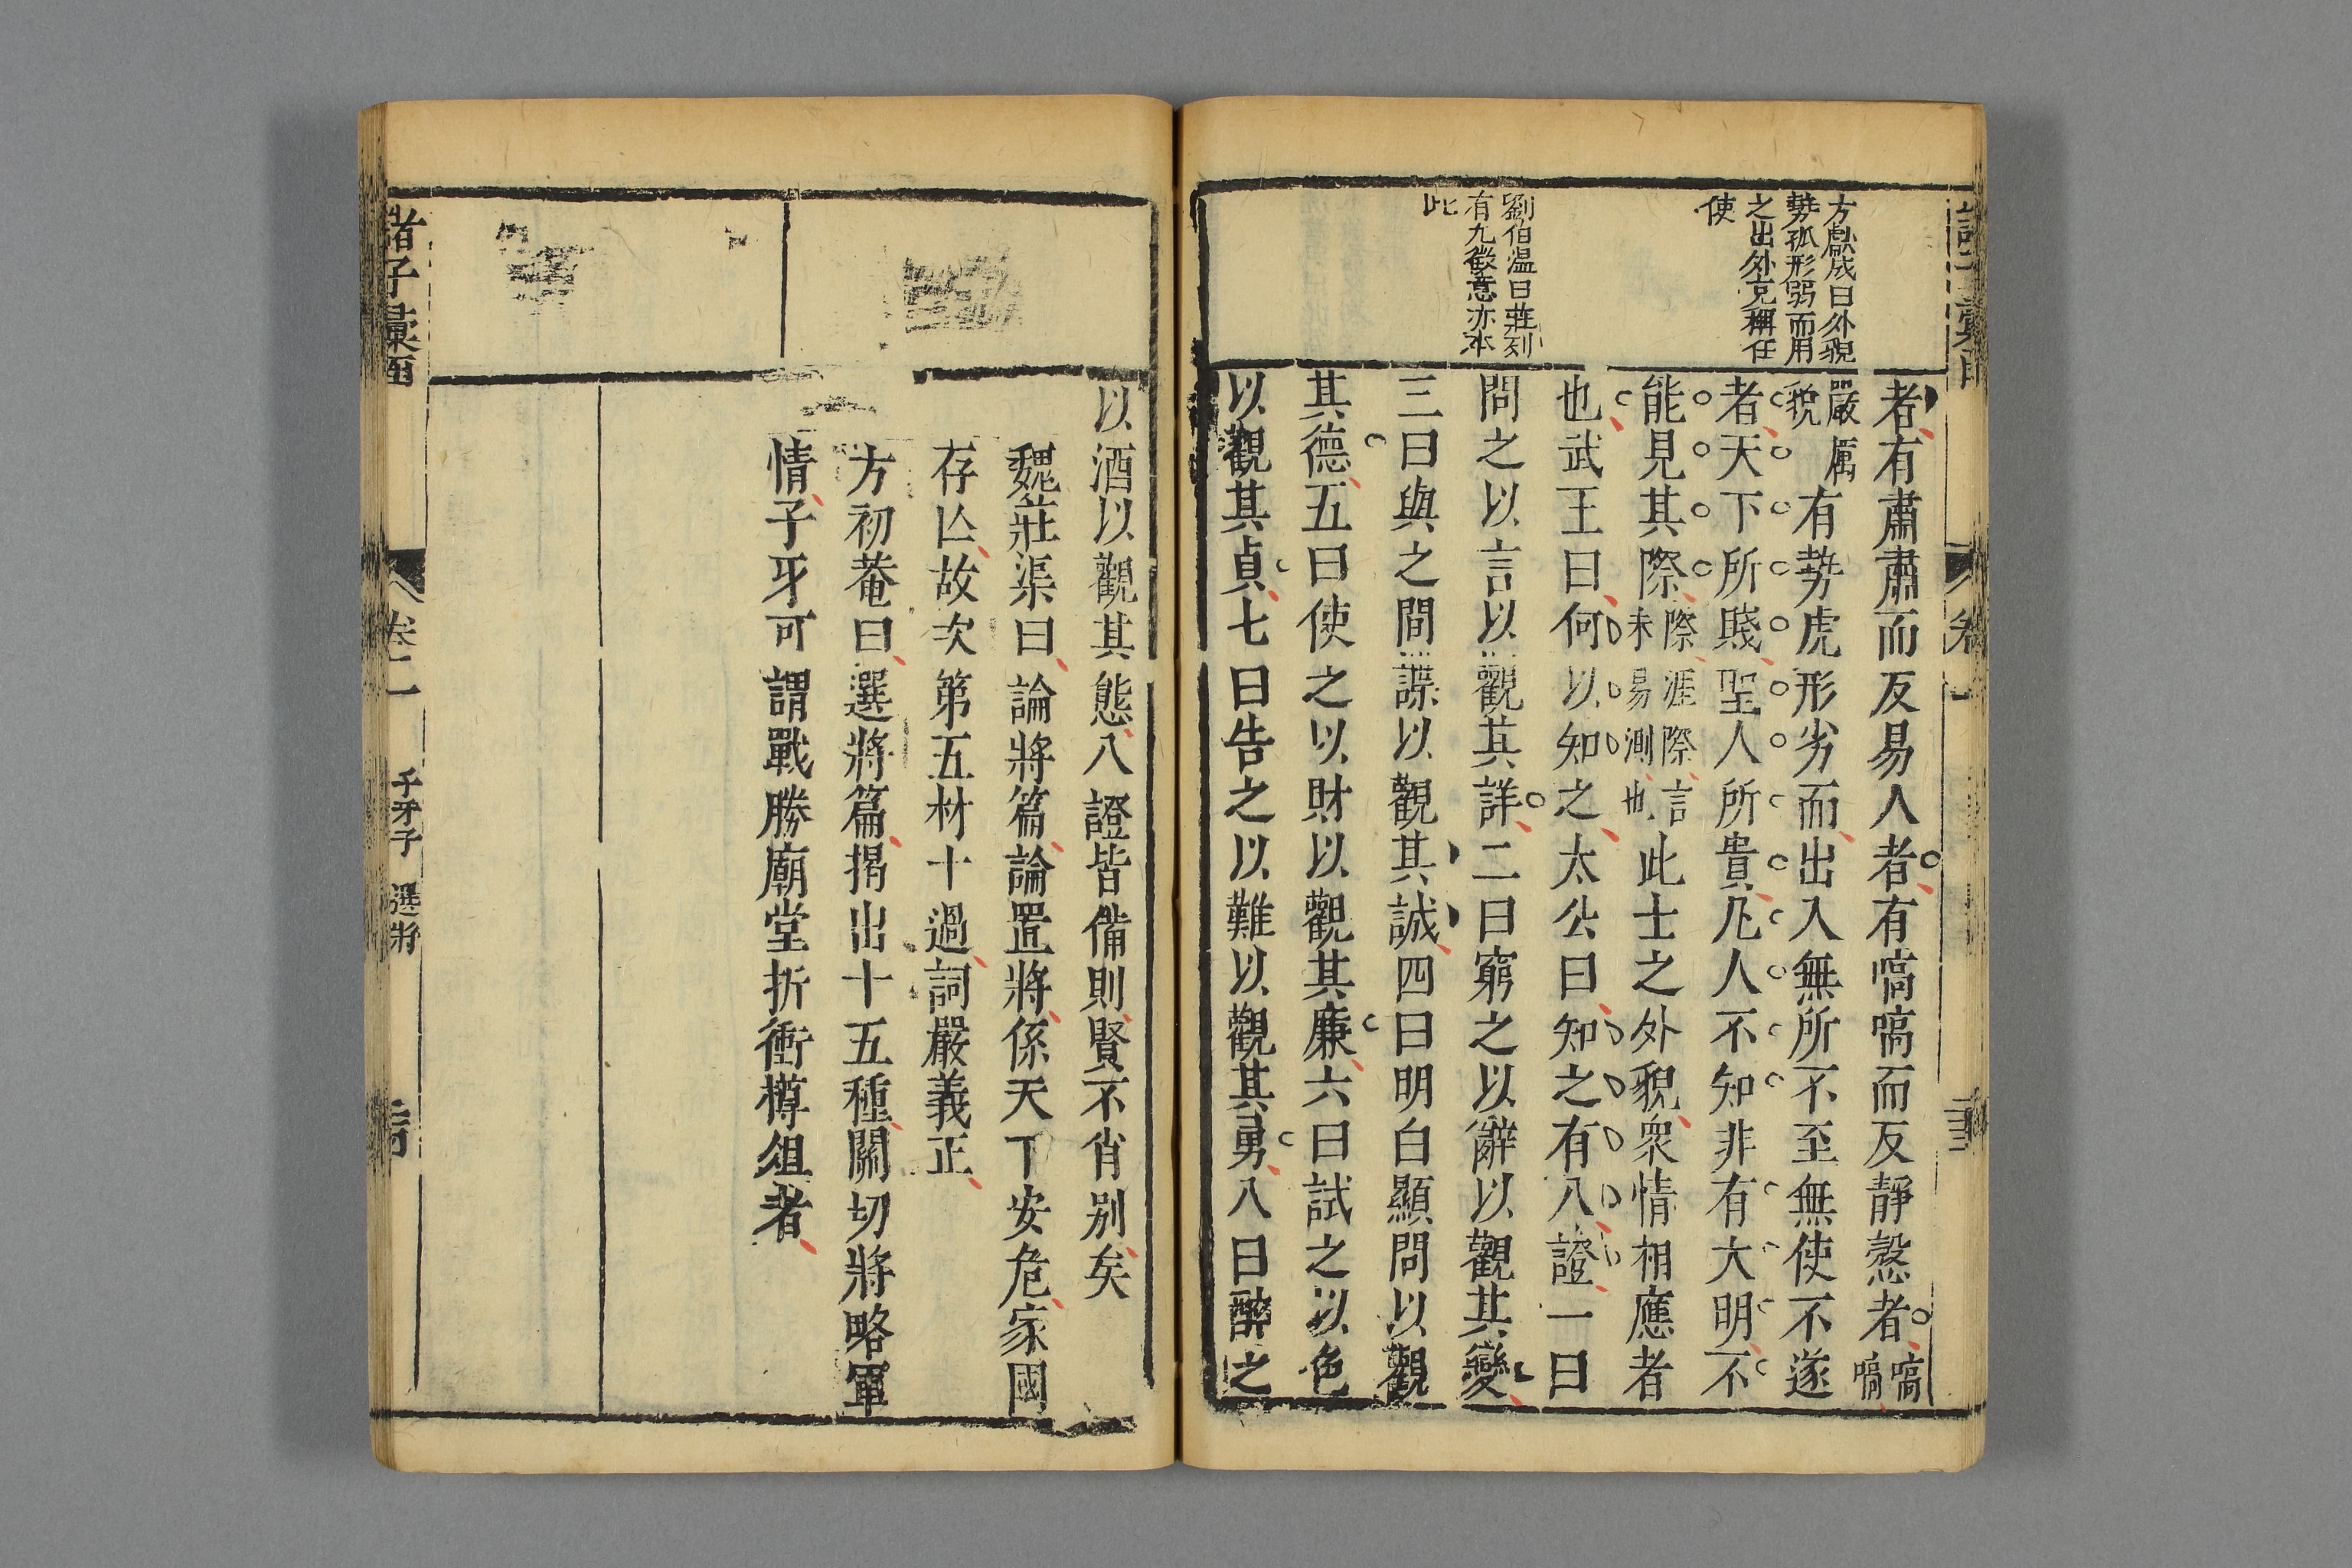 方獻成曰外貌
勢孤形弱而用
之出外克稱任
使
劉伯温曰莊列
有九徵意亦本
此
者有肅肅而反易人者有嗃嗃而反靜慤者嗃嗃
嚴厲貌有勢虛形劣而出入無所不至無使不遂
者天下所賤聖人所貴凡人不知非有大明不
能見其際際涯際言未易測也此士之外貌衆情相應者
也武王曰何以知之太公曰知之有八證一曰
問之以言以觀其詳二曰窮之以辭以觀其變
三曰與之間諜以觀其誠四曰明白顯問以觀
其德五曰使之以財以觀其廉六曰試之以色
以觀其貞七曰告之以難以觀其勇八曰醉之
以酒以觀其態八證皆備則賢不肖別矣
魏莊渠曰論將篇論置將係天下安危家國
存亾故次第五材十過詞嚴義正
方初菴曰選將篇揭出十五種關切將略軍
情子牙可謂戰勝廟堂折衝樽俎者
諸子彙函
卷二
子牙子
選將